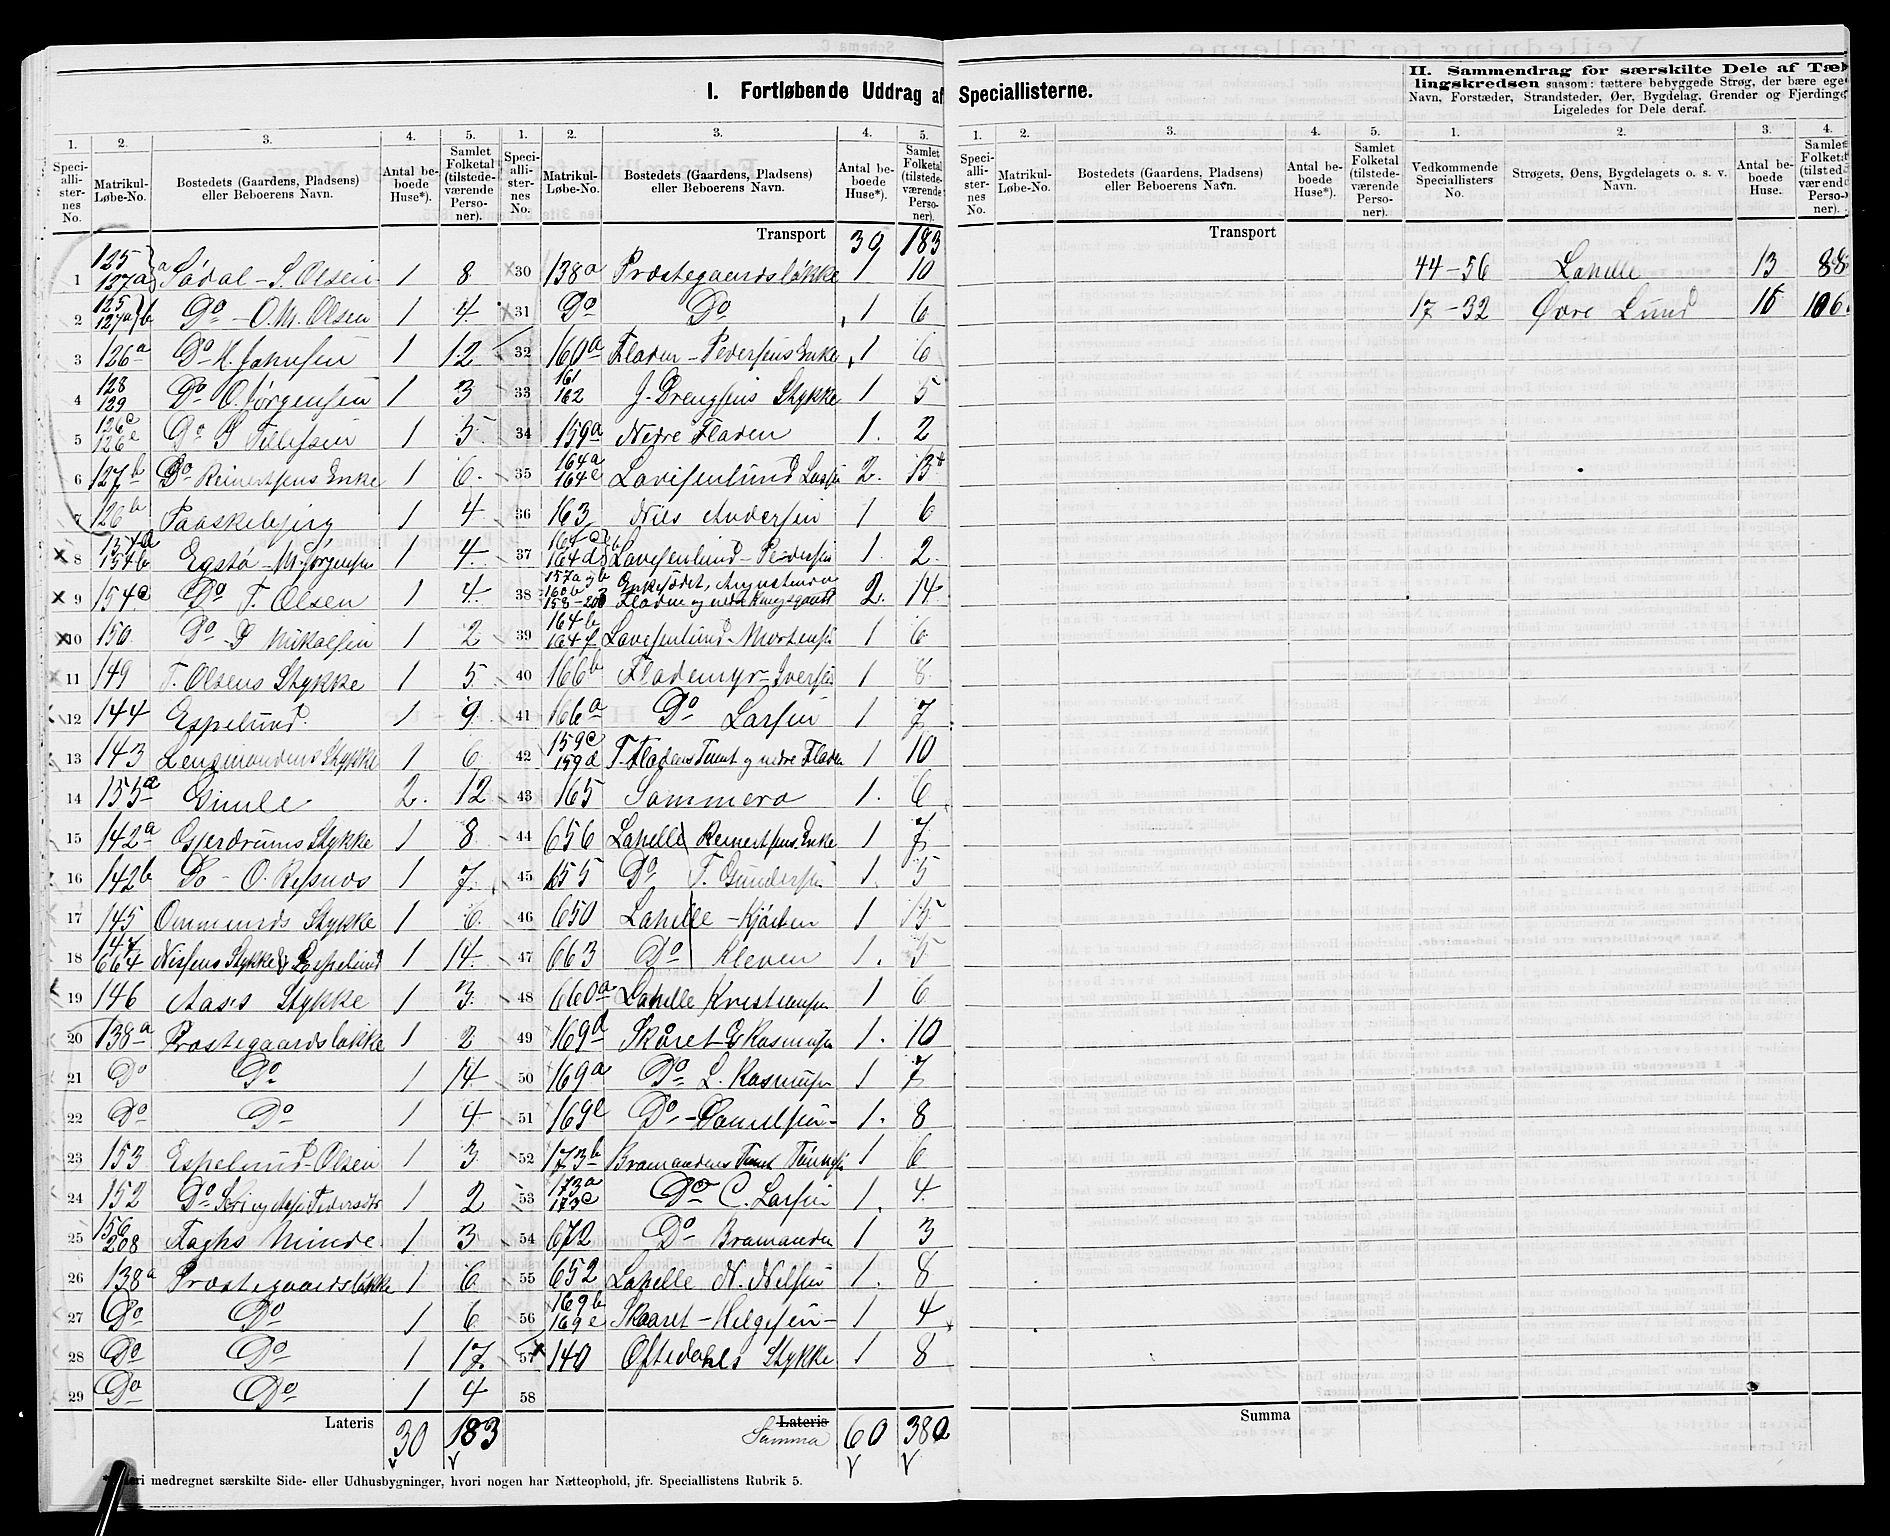 I. Fortløbende Uddrag af Speciallisterne.
II. Sammendrag for særskilte Dele af Tællingskredsen saasom: tættere bebyggede Strøg, der bære eget
Navn, Forstæder, Strandsteder, Øer, Bygdelag, Grender og Fjerdinger
Ligeledes for Dele deraf.
1. 2. 3. 4. 5. 1. 2. 3. 4. 5.
Speciallisternes No. Matrikul-Løbe-No. Bostedets (Gaardens, Pladsens) eller Beboerens Navn. Antal beboede Huse*). Samlet Folketal (tilstedeværende Personer).
Speciallisternes No. Matrikul-Løbe-No. Bostedets (Gaardens, Pladsens) eller Beboerens Navn. Antal beboede Huse*). Samlet Folketal (tilstedeværende Personer).
1 125 127a a Sødal - S. Olsen 1 8
2 125 127a b Do - O. M. Olsen 1 4
3 126a Do H. Johnsen 1 12
4 128 129 Do O. Jørgensen 1 3
5 126c 126e Do S Tellefsen 1 5
6 127b Do Reinertsens Enke 1 6
7 126b Paaskebjerg 1 4
8 154a 154b Egstø - M. Jørgensen 1 4
9 154c Do T. Olsen 1 4
10 150 Do - P Mikalsen 1 2
11 149 T. Olsens Stykke 1 5
12 144 Espelund 1 9
13 143 Lensmandens Stykke 1 6
14 155a Gimle 2 12
15 142a Gjerdrums Stykke 1 8
16 142b Do - O. Refsnæs 1 7
17 145 Ommunds Stykke 1 6
18 147 664 Nissens Stykke & Espelund 1 14
19 146 Aas's Stykke 1 3
20 138a Præstegaardsløkke 1 2
21 Do Do 1 14
22 Do Do 1 4
23 153 Espelund - Olsen 1 3
24 152 Do Seri og Pedersdtr 1 2
25 156 208 Faghs Minde 1 3
26 138a Præstegaardsløkke 1 6
27 Do Do 1 6
28 Do Do 1 17
29 Do Do 1 4
Lateris 30 183
Transport 30 183
30 138a Præstegaardsløkke 1 10
31 Do Do 1 6
32 160a Fladen - Pedersens Enke 1 6
33 161 162 J. Drengsens Stykke 1 5
34 159a Nedre Fladen 1 2
35 164a 164e Lavisenlund Larsen 2 13
36 163 Nils Andersen 1 6
37 164c 164d Lavisenlund - Pedersen 1 2
38 157a og b 160b 158-200 Enkesædet, Augustenara Fladen og nedre Kongsgaard 2 14
39 164b 164f Lavisenlund - Mortensen 1 6
40 166b Flademyr - Iversen 1 8
41 166a Do Larsen 1 7
42 159c 159d T. Fladens Tomt og nedre Fladen 1 10
43 165 Sommero 1 6
44 656 Lahelle Reinertsens Enke 1 7
45 655 Do T. Gundersen 1 5
46 650 Lahelle - Kjørten 1 15
47 663 Do Kleven 1 5
48 660a Lahelle Kristiansen 1 6
49 169d Skåret G Rasmussen 1 10
50 169a Do L. Rasmussen 1 7
51 169c Do - Danielsen 1 8
52 173b Bramandens Tomt Tønnesen 1 6
53 173a 173c Do C. Larsen 1 4
54 672 Do Bramanden 1 3
55 652 Lahelle N. Nilsen 1 8
56 169b 169e Skaaret - Helgesen 1 4
57 140 Oftedahls Stykke 1 8
58
Lateris Summa 60 380
*) Heri medregnet særskilte Side- eller Udhusbygninger, hvori nogen har Natteophold, jfr. Speciallistens Rubrik 5.
1. 2. 3. 4. 5. 1. 2. 3. 4.
Speciallisternes No. Matrikul-Løbe-No. Bostedets (Gaardens, Pladsens) eller Beboerens Navn. Antal beboede Huse*). Samlet Folketal (tilstedeværende Personer).
Vedkommende Speciallisters No. Strøgets, Øens, Bygdelagets o. s. v. Navn. Antal beboede Huse. Samlet Folketal (tilstedeværende Personer).
Transport
44-56 Lahelle 13 88
17-32 Øvre Lund 16 106
Summa